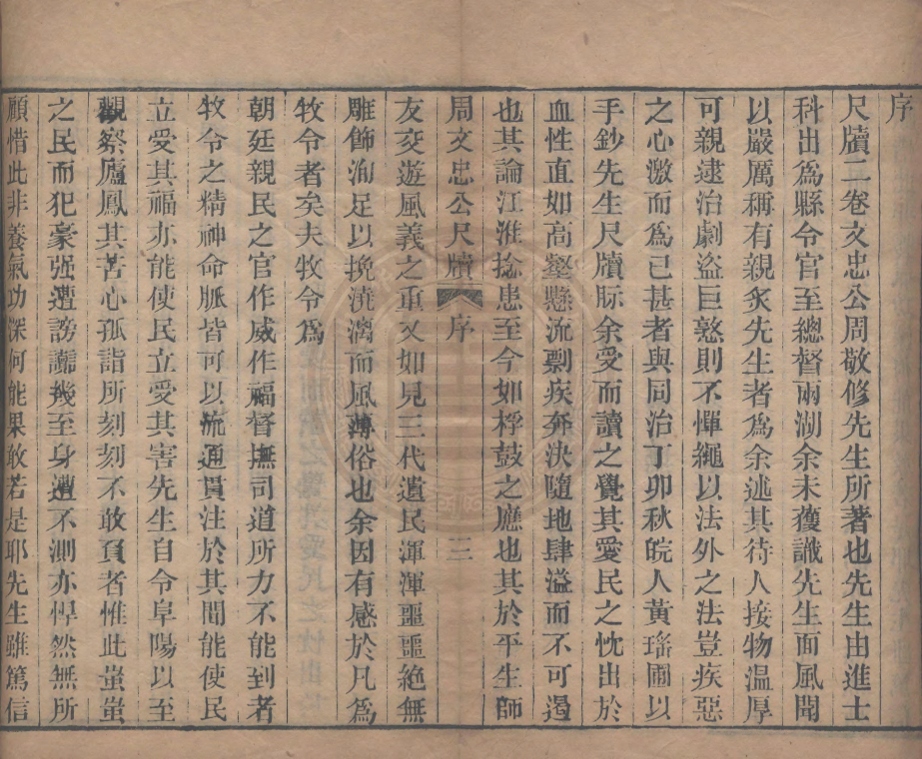 序
尺牘二卷文忠公周敬修先生所著也先生由進士
科出爲縣令官至總督兩湖余未獲識先生面風聞
以嚴厲稱有親炙先生者爲余述其待人接物温厚
可親逮治劇盜巨憝則不憚繩以法外之法豈疾惡
之心激而爲已甚者與同治丁卯秋皖人黃瑤圃以
手鈔先生尺牘眎余受而讀之覺其愛民之忱出於
血性直如高壑懸流剽疾奔決隨地肆溢而不可遏
也其論江淮捻患至今如桴鼓之應也其於平生師
周文忠公尺牘 序 三
友交遊風義之重又如見三代遺民渾渾噩噩絶無
雕飾洵足以挽澆漓而風薄俗也余因有感於凡爲
牧令者矣夫牧令爲
朝廷親民之官作威作福督撫司道所力不能到者
牧令之精神命脈皆可以流通貫注於其間能使民
立受其福亦能使民立受其害先生自令阜陽以至
觀察廬鳳其苦心孤詣所刻刻不敢負者惟此蚩蚩
之民而犯豪强遭謗讟幾至身遭不測亦悍然無所
顧惜此非養氣功深何能果敢若是耶先生雖篤信